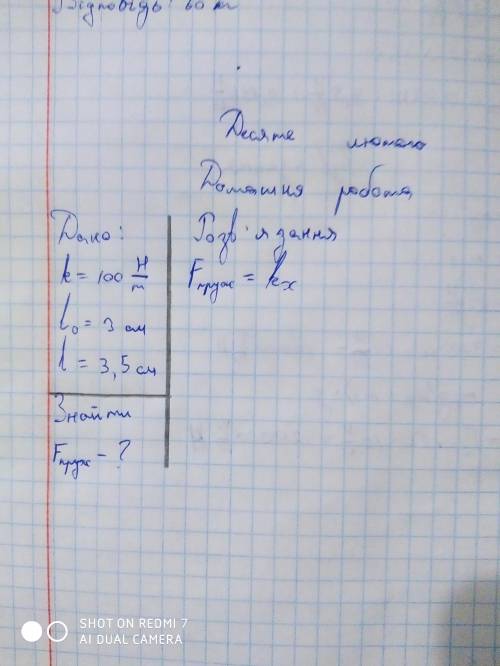 Відповідь: 60 м
Десяте лютого
Домашня робота
Дано:
k = 100 Н/м
l₀ = 3 см
l = 3,5 см
Знайти
Fпруж - ?
Розв'язання
Fпруж = kx
SHOT ON REDMI 7
AI DUAL CAMERA